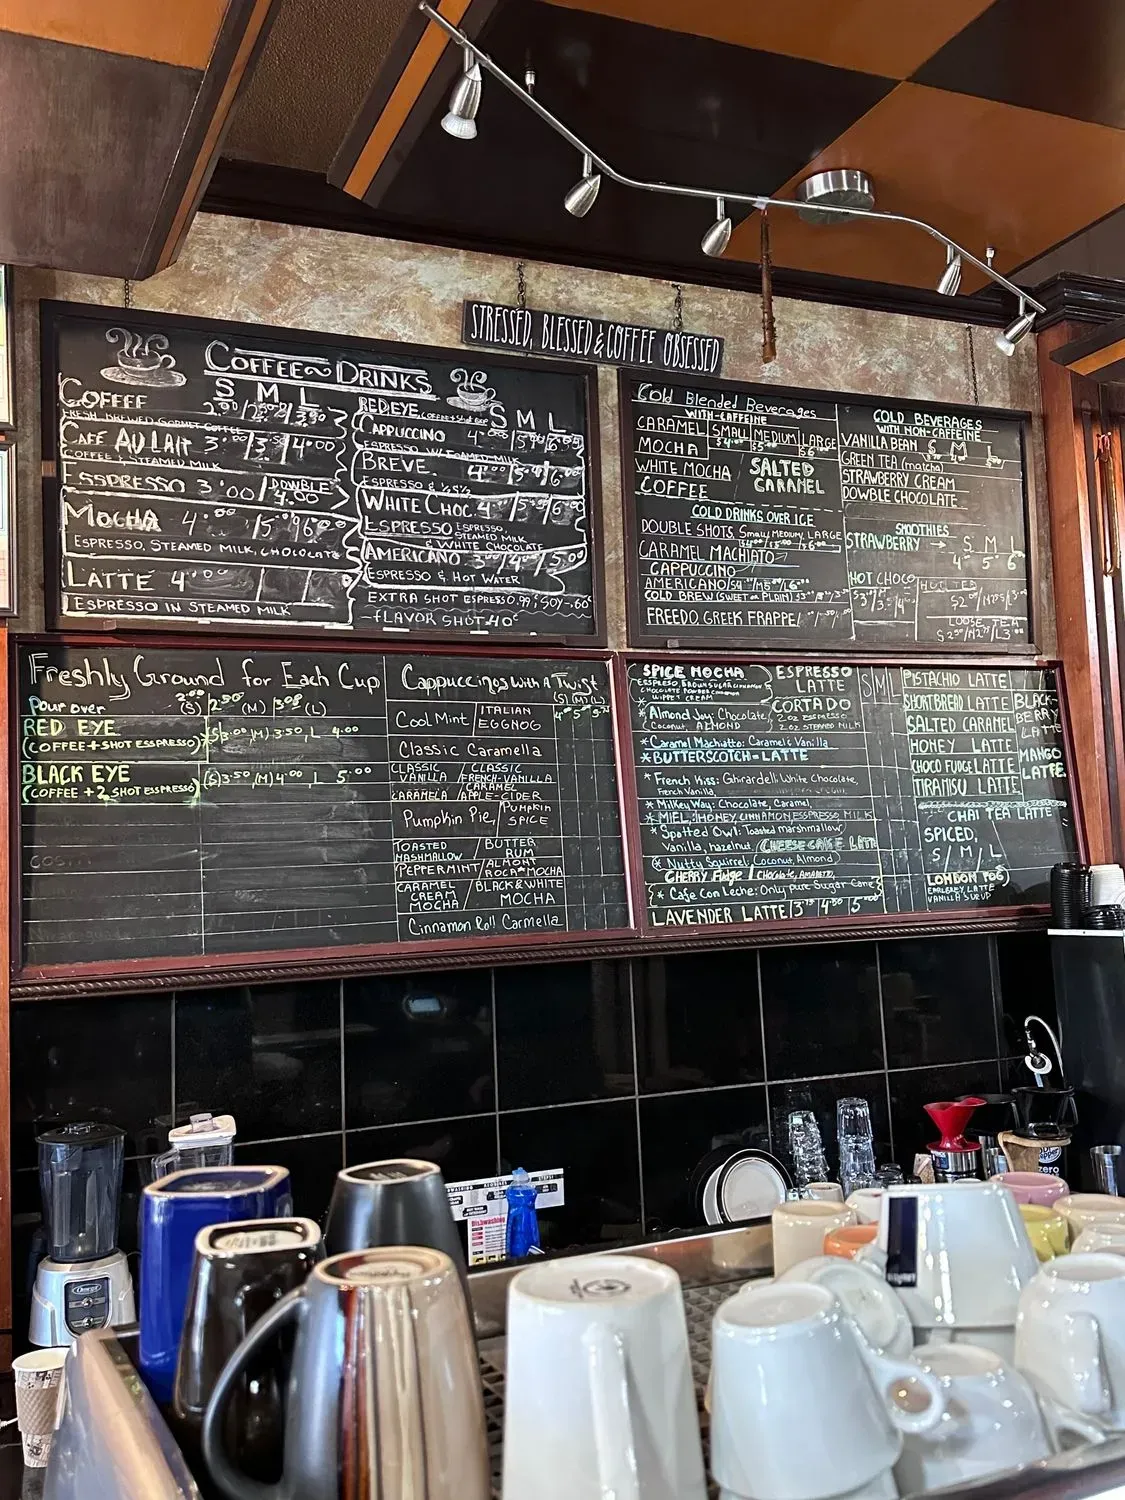 STRESSED, BLESSED & COFFEE OBSESSED
COFFEE DRINKS
S M L
COFFEE
FRESH BREWED GORMET COFFEE
CAFE AU LAIT 3.00/3.50/4.00
COFFEE & STEAMED MILK
ESPRESSO 3.00/DOWBLE 4.00
MOCHA 4.00
ESPRESSO, STEAMED MILK, CHOCOLATE
LATTE 4.00
ESPRESSO IN STEAMED MILK
RED EYE
S M L
CAPPUCCINO
ESPRESSO W/FOAMED MILK
BREVE
ESPRESSO & ½ ½
WHITE CHOC.
ESPRESSO ESPRESSO,
& WHITE CHOCOLATE
AMERICANO
ESPRESSO & HOT WATER
EXTRA SHOT ESPRESSO.99
FLAVOR SHOT
Cold Blended Beverages
WITH-CAFFEINE
CARAMEL SMALL MEDIUM LARGE
MOCHA
WHITE MOCHA
COFFEE
SALTED CARAMEL
COLD DRINKS OVER ICE
DOUBLE SHOTS, Small/MEDIUM, LARGE
CARAMEL MACHIATO
CAPPUCCINO
AMERICANO
COLD BREW (SWEET or PLAIN)
FREEDO GREEK FRAPPE
COLD BEVERAGES
WITH NON-CAFFEINE
VANILLA BEAN S M L
GREEN TEA (matcha)
STRAWBERRY CREAM
DOWBLE CHOCOLATE
SMOOTHIES
STRAWBERRY → S M L
4 5 6
HOT CHOCO
HOT TEA
LOOSE TEA
Freshly Ground for Each Cup
Pour over 2.00 (S) 2.50 (M) (L)
RED EYE
(COFFEE+SHOT ESSPRESSO) S 3.00, M) 3.50, L 4.00
BLACK EYE
(COFFEE + 2 SHOT ESSPRESSO) (S) 3.50, (M) 4.00, L 5.00
Cappuccinos with A Twist
(S) (M) (L)
Cool Mint / ITALIAN EGGNOG
Classic Caramella
CLASSIC VANILLA / CLASSIC FRENCH-VANILLA
CARAMELA / CARAMEL APPLE-CIDER
Pumpkin Pie / PUMPKIN SPICE
TOASTED MASHMALLOW / BUTTER RUM
PEPPERMINT / ALMONT ROCA MOCHA
CARAMEL CREAM MOCHA / BLACK & WHITE MOCHA
Cinnamon Roll Carmella
SPICE MOCHA
ESPRESO, BROWN SUGAR CINNAMON
CHOCOLATE POWDER CINNAMON
WIPPET CREAM
* Almond Joy: Chocolate,
Coconut, ALMOND
* Caramel Machiatto: Caramel & Vanilla
* BUTTERSCOTCH-LATTE
* French Kiss: Ghirardelli White Chocolate,
French Vanilla,
* Milkey Way: Chocolate, Caramel,
* MIEL: HONEY CINNAMON, ESSPRESSO, MILK
* Spotted Owl: Toasted marshmallow
Vanilla, hazelnut, CHEESE CAKE LATTE
* Nutty Squirrel: Coconut, Almond
CHERRY Fudge / CHOCLATE, AMARETO,
* Cafe Con Leche: Only pure Sugar Cane
LAVENDER LATTE
ESPRESSO
LATTE
CORTADO
2 OZ ESPRESSO
2 OZ STEAMED MILK
S M L
PISTACHIO LATTE
SHORTBREAD LATTE
SALTED CARAMEL
HONEY LATTE
CHOCO FUDGE LATTE
TIRAMISU LATTE
BLACK-
BERRY
LATTE
MANGO
LATTE
CHAI TEA LATTE
SPICED,
S / M / L
LONDON FOG
EARLGREY LATTE
VANILLA SYRUP